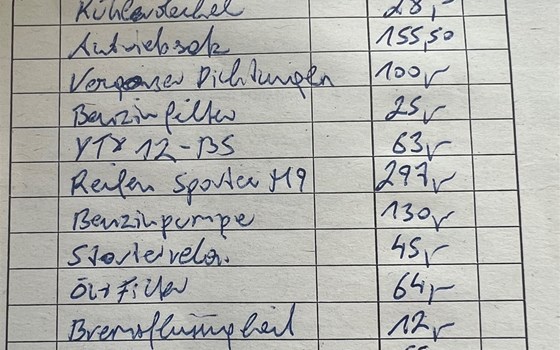 Kühlerdeckel 28,-
Antriebssatz 155,50
Vergaser Dichtungen 100,-
Benzinfilter 25,-
YTX 12-BS 63,-
Reifen Sportec M9 297,-
Benzinpumpe 130,-
Starterrelai. 45,-
Öl+Filter 64,-
Bremsflüssigkeit 12,-